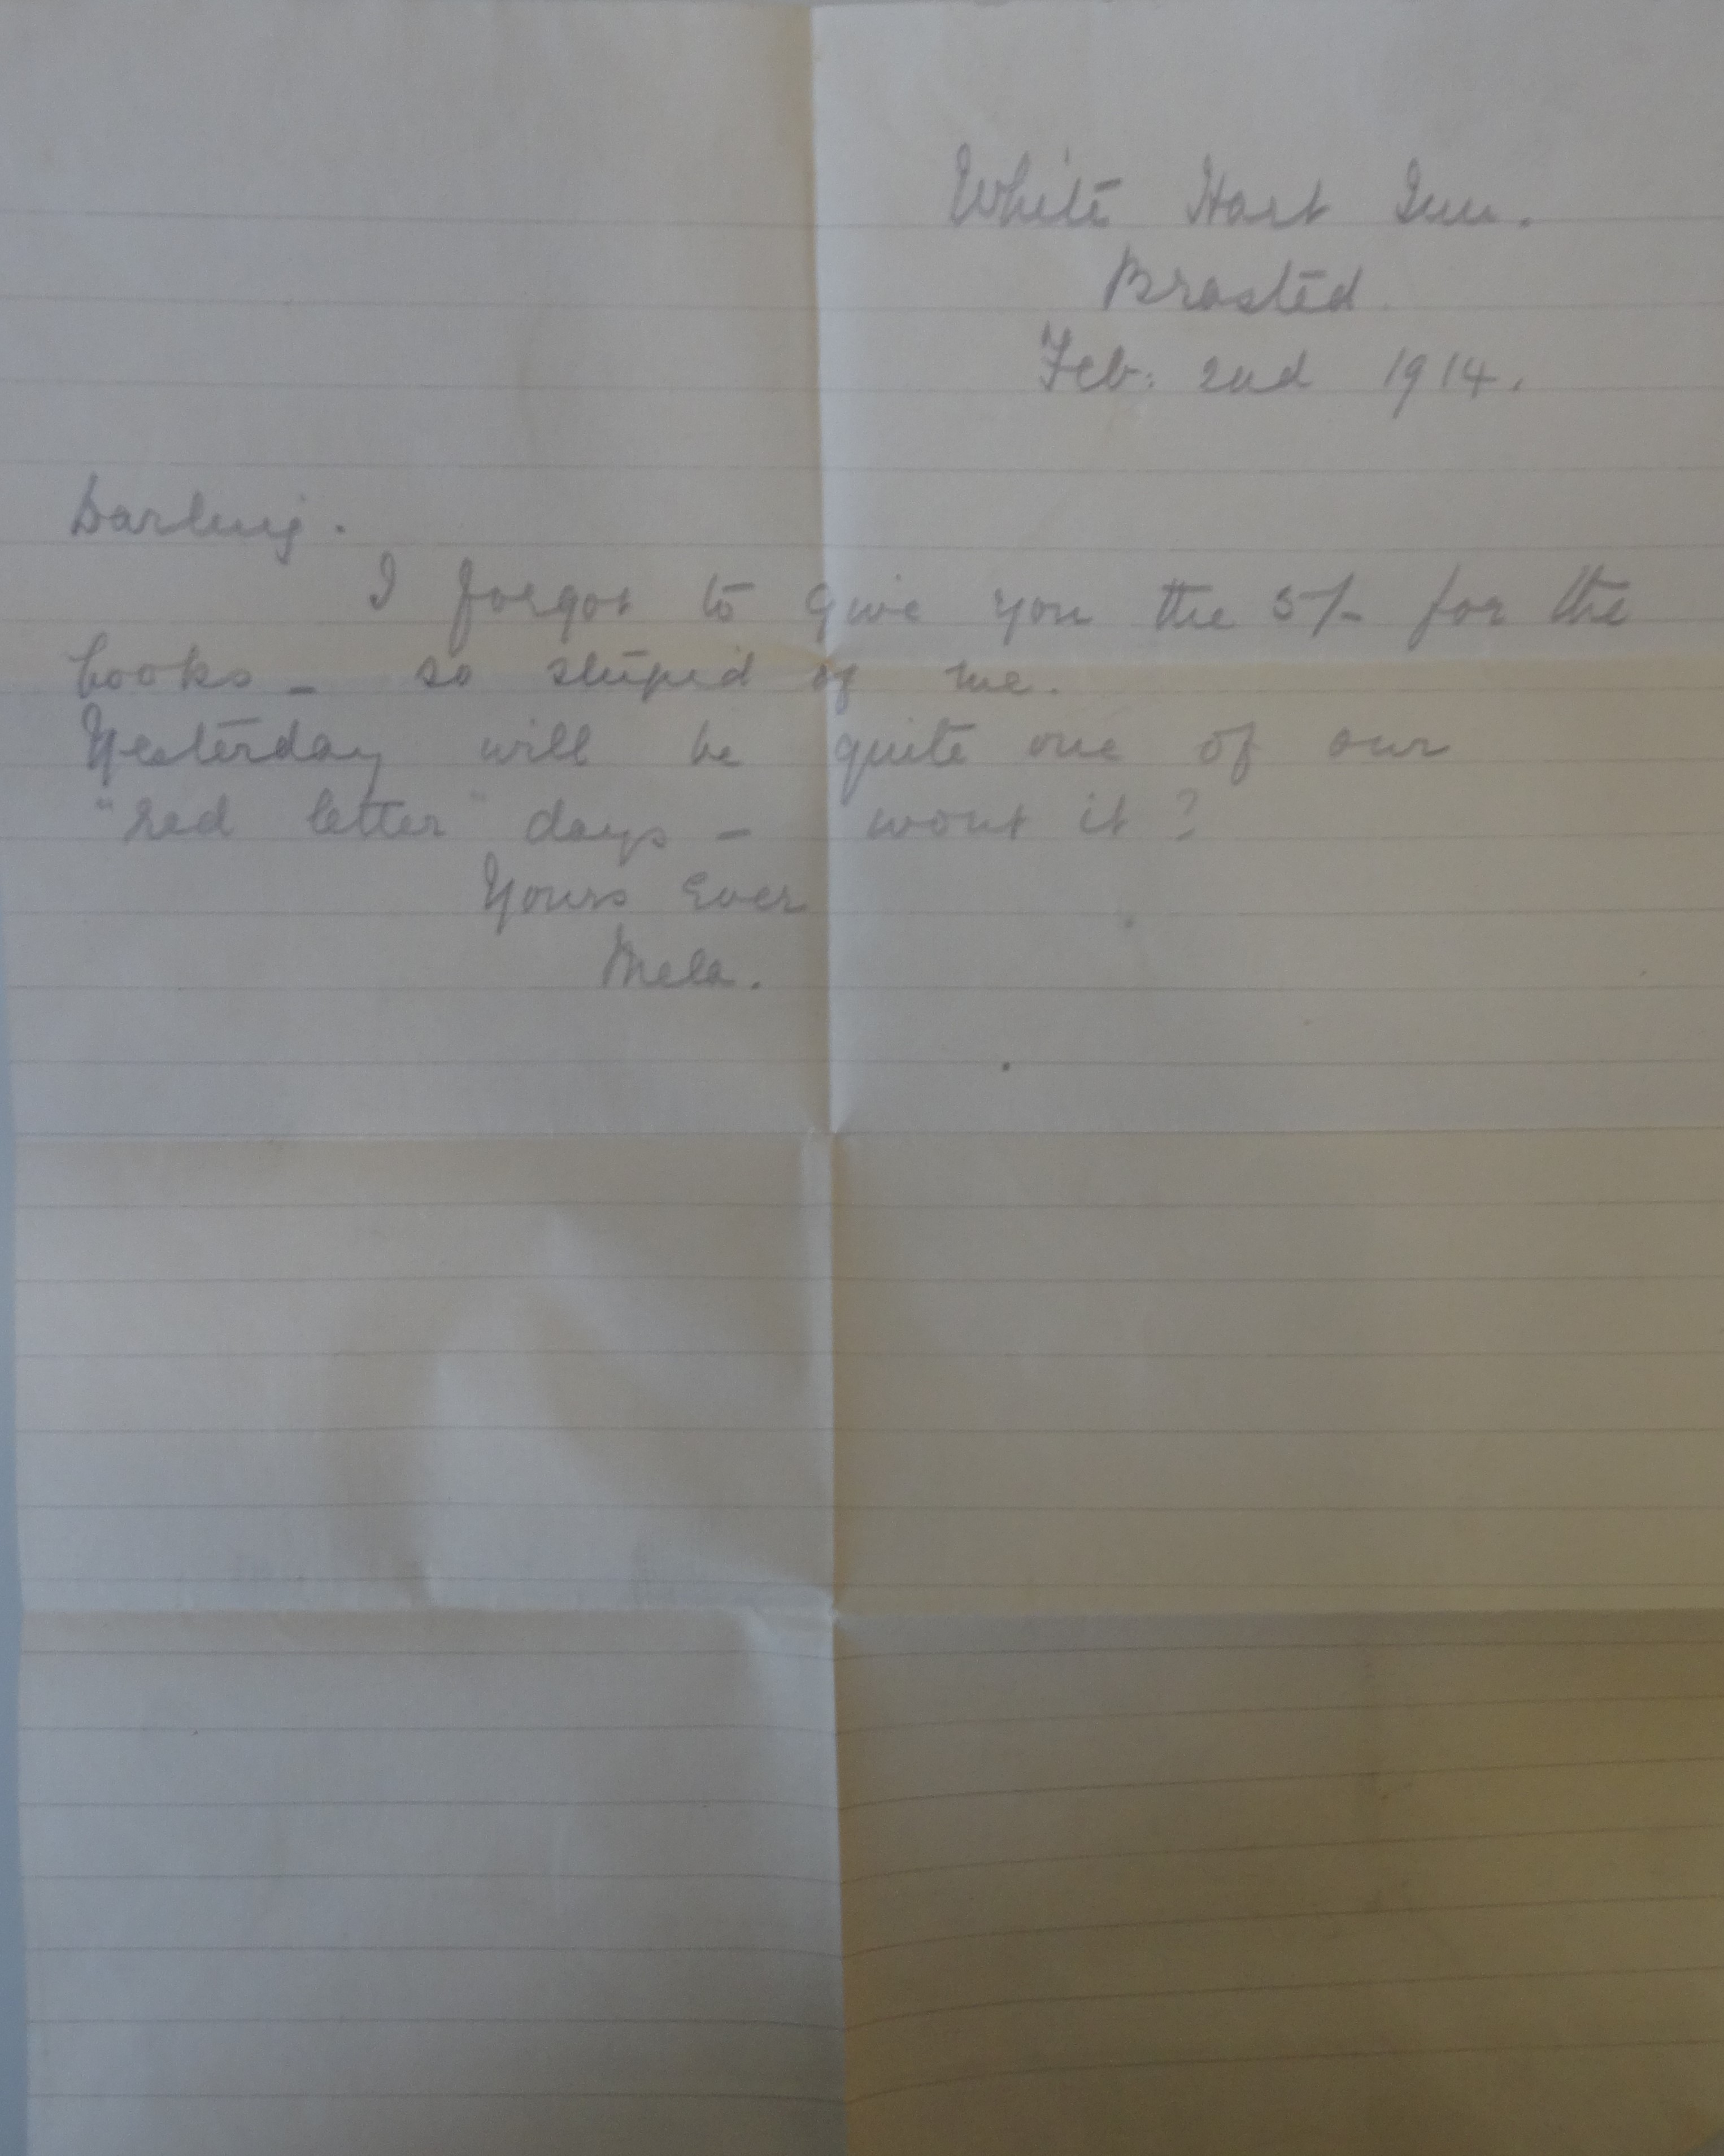 White Hart Inn.
Brasted
Feb: 2nd 1914.
Darling.
I forgot to give you the 5/- for the
books - so stupid of me.
Yesterday will be quite one of our
"red letter" days - wont it?
Yours Ever
Mela.